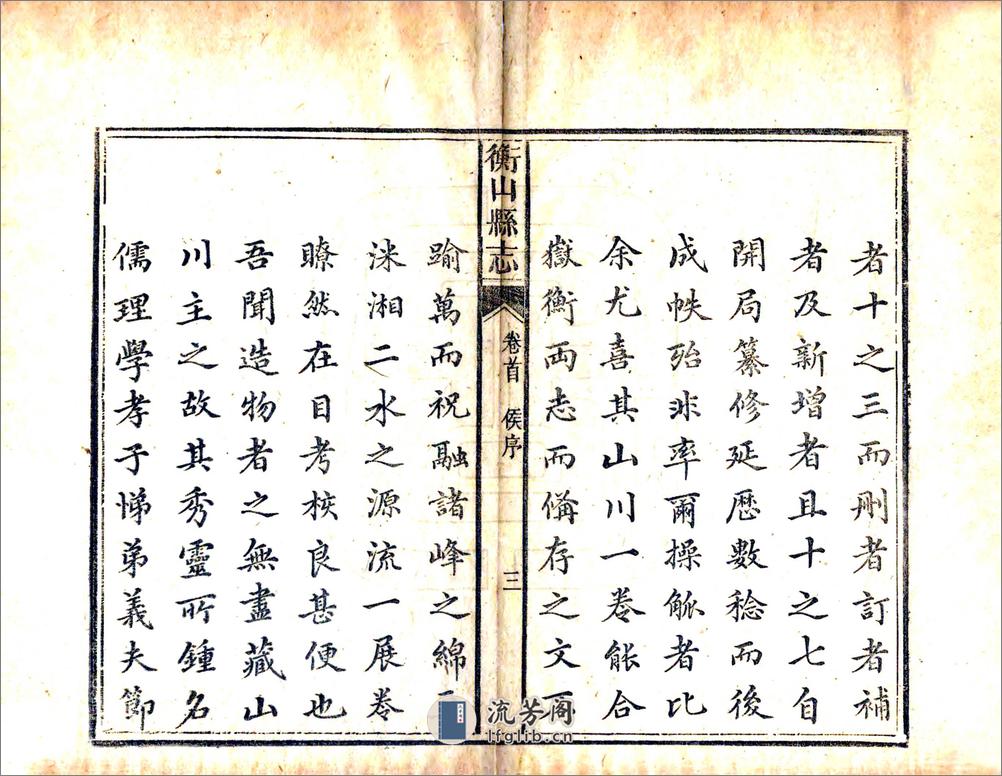 者十之三而刪者訂者補
者及新增者且十之七自
開局纂修延歷數稔而後
成帙殆非率爾操觚者比
余尤喜其山川一卷能合
嶽衡兩志而備存之文不
衡山縣志
卷首 侯序
三
踰萬而祝融諸峰之綿
洣湘二水之源流一展卷
瞭然在目考核良甚便也
吾聞造物者之無盡藏山
川主之故其秀靈所鍾名
儒理學孝子悌弟義夫節
流芳阁
lfglib.cn